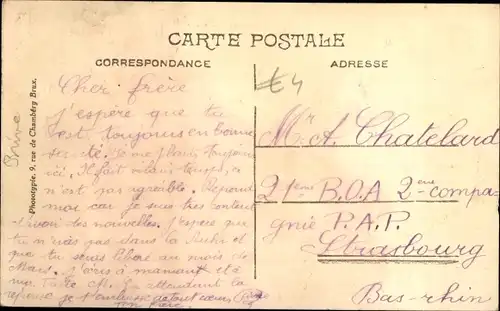 CARTE POSTALE
CORRESPONDANCE
ADRESSE
Cher frère
j'espère que tu
est toujours en bonne
santé. Je me plais toujours
ici. Il fait vilain temps, ce
n'est pas agréable. Répond
moi car je suis très content
d'avoir des nouvelles. J'espère que
tu n'iras pas dans la Ruhr et
que tu seras libéré au mois de
Mars. J'écris à maman et à
ma tante M. En attendant la
réponse je t'embrasse de tout cœur
ton frère
Mr A. Chatelard
21ème B.O.A 2ème compa-
gnie P.A.P.
Strasbourg
Bas-rhin
£4
Brive
Phototypie. 9, rue de Chambéry Brux.